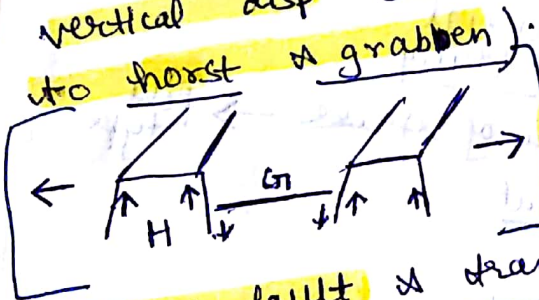 vertical disp
to horst & grabben).
G
H
fault & tra